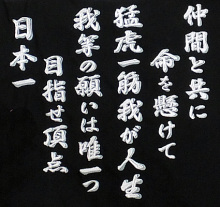 仲間と共に
命を懸けて
猛虎一筋我が人生
我等の願いは唯一つ
目指せ頂点
日本一